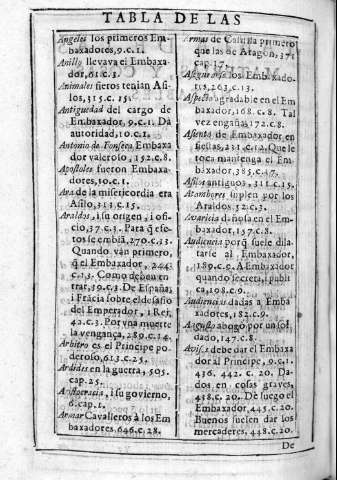 TABLA DE LAS
Angeles los primeros Em-
baxadores, 9. c. 1.
Anillo llevava el Embaxa-
dor, 61. c. 3.
Animales fieros tenian Asi-
los, 315. c. 15.
Antiguedad del cargo de
Embaxador, 9. c. 1. Da
autoridad, 10. c. 1.
Antonio de Fonseca Embaxa
dor valeroso, 152. c. 8.
Apostoles fueron Embaxa-
dores, 10. c. 1.
Ara de la misericordia era
Asilo, 313. c. 15.
Araldos, i su origen, i ofi-
cio, 37. c. 3. Para q̃ ese-
tos se embiã, 270. c. 13.
Quando van primero,
q̃ el Embaxador,
c. 13. Como deben en-
trar, 39. c. 3. De España,
i Frãcia sobre el desafio
del Emperador, i Rei,
42. c. 3. Por vna muerte
la vengança, 289. c. 14.
Arbitro es el Principe po-
deroso, 613. c. 25.
Ardides en la guerra, 505.
cap. 25.
Aristocracia, i su govierno,
6. cap. 1.
Armar Cavalleros à los Em
baxadores. 646. c. 28.
Armas de Castilla primero
que las de Aragon, 37.
cap. 37.
Asegurarse los Embaxado-
res, 263. c. 13.
Aspecto agradable en el Em-
baxador, 168. c. 8. Tal
vez engaña, 172. c. 8.
Asiento de Embaxador en
fiestas, 231. c. 12. Que le
toca mantenga el Em-
baxador, 385. c. 47.
Asilos antiguos, 311. c. 15.
Atambores suplen por los
Araldos. 52. c. 3.
Avaricia dañosa en el Em-
baxador, 157. c. 8.
Audiencia porq̃ suele dila-
tarse al Embaxador,
189. c. 9. A Embaxador
quando secreta, i publi
ca, 198. c. 9.
Audiencias dadas a Emba
xadores, 182. c. 9.
Augusto abogò por un sol-
dado, 147. c. 8.
Avisos debe dar el Embaxa
dor al Principe, 9. c. 1.
436. 442. c. 20. Da-
dos en cosas graves,
438. c. 20. De fuego el
Embaxador, 445. c. 20.
Buenos suelen dar los
mercaderes, 448. c. 20.
De